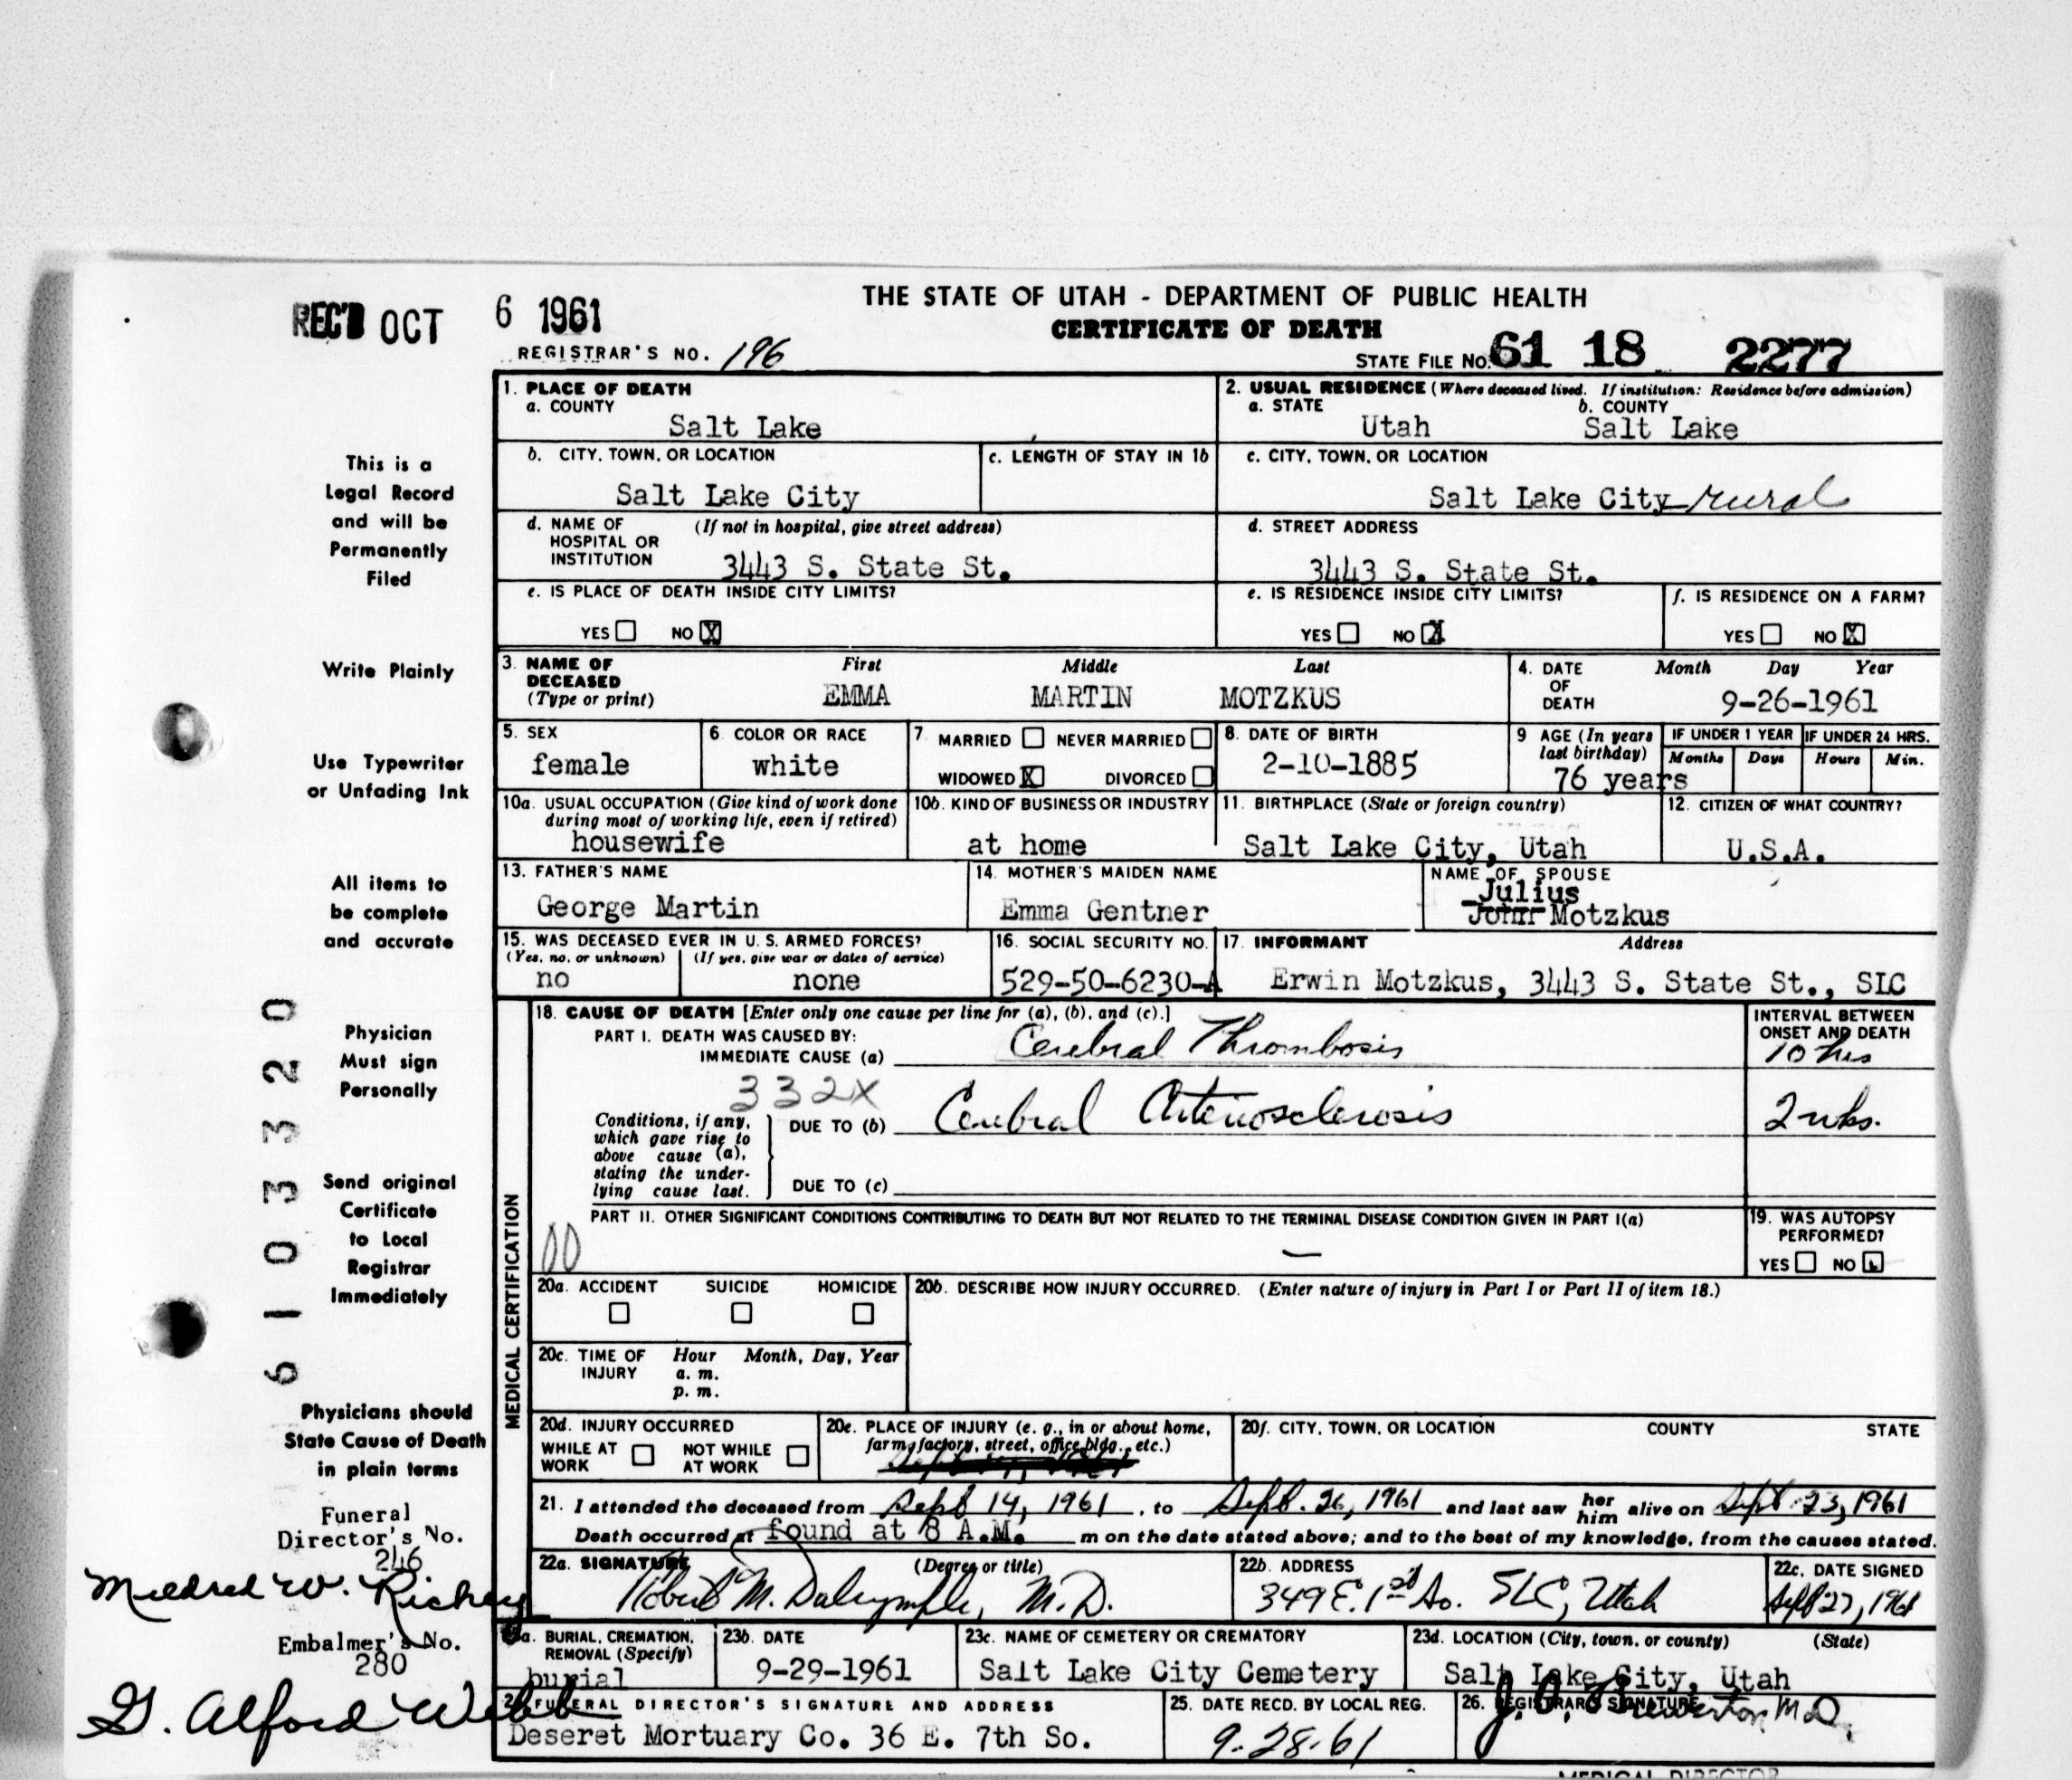 THE STATE OF UTAH - DEPARTMENT OF PUBLIC HEALTH
CERTIFICATE OF DEATH
REC'D OCT 6 1961
REGISTRAR'S NO. 196
STATE FILE NO. 61 18 2277
1. PLACE OF DEATH
a. COUNTY
Salt Lake
2. USUAL RESIDENCE (Where deceased lived. If institution: Residence before admission)
a. STATE b. COUNTY
Utah Salt Lake
b. CITY, TOWN, OR LOCATION
Salt Lake City
c. LENGTH OF STAY IN 1b
c. CITY, TOWN, OR LOCATION
Salt Lake City rural
d. NAME OF HOSPITAL OR INSTITUTION (If not in hospital, give street address)
3443 S. State St.
d. STREET ADDRESS
3443 S. State St.
e. IS PLACE OF DEATH INSIDE CITY LIMITS?
YES NO X
e. IS RESIDENCE INSIDE CITY LIMITS?
YES NO X
f. IS RESIDENCE ON A FARM?
YES NO X
3. NAME OF DECEASED (Type or print)
First Middle Last
EMMA MARTIN MOTZKUS
4. DATE OF DEATH Month Day Year
9-26-1961
5. SEX
female
6. COLOR OR RACE
white
7. MARRIED NEVER MARRIED
WIDOWED X DIVORCED
8. DATE OF BIRTH
2-10-1885
9 AGE (In years last birthday)
76 years
IF UNDER 1 YEAR IF UNDER 24 HRS.
Months Days Hours Min.
10a. USUAL OCCUPATION (Give kind of work done during most of working life, even if retired)
housewife
10b. KIND OF BUSINESS OR INDUSTRY
at home
11. BIRTHPLACE (State or foreign country)
Salt Lake City, Utah
12. CITIZEN OF WHAT COUNTRY?
U.S.A.
13. FATHER'S NAME
George Martin
14. MOTHER'S MAIDEN NAME
Emma Gentner
NAME OF SPOUSE
Julius
John Motzkus
15. WAS DECEASED EVER IN U. S. ARMED FORCES?
(Yes, no, or unknown) (If yes, give war or dates of service)
no none
16. SOCIAL SECURITY NO.
529-50-6230-A
17. INFORMANT Address
Erwin Motzkus, 3443 S. State St., SLC
MEDICAL CERTIFICATION
18. CAUSE OF DEATH [Enter only one cause per line for (a), (b), and (c).]
INTERVAL BETWEEN ONSET AND DEATH
PART I. DEATH WAS CAUSED BY:
IMMEDIATE CAUSE (a) Cerebral Thrombosis 10 hrs
332X
Conditions, if any, which gave rise to above cause (a), stating the underlying cause last.
DUE TO (b) Cerebral Arteriosclerosis 2 wks.
DUE TO (c)
PART II. OTHER SIGNIFICANT CONDITIONS CONTRIBUTING TO DEATH BUT NOT RELATED TO THE TERMINAL DISEASE CONDITION GIVEN IN PART I(a)
00 —
19. WAS AUTOPSY PERFORMED?
YES NO
20a. ACCIDENT SUICIDE HOMICIDE
20b. DESCRIBE HOW INJURY OCCURRED. (Enter nature of injury in Part I or Part II of item 18.)
20c. TIME OF INJURY Hour Month, Day, Year
a. m.
p. m.
20d. INJURY OCCURRED
WHILE AT WORK NOT WHILE AT WORK
20e. PLACE OF INJURY (e. g., in or about home, farm, factory, street, office bldg., etc.)
20f. CITY, TOWN, OR LOCATION COUNTY STATE
21. I attended the deceased from Sept 14, 1961, to Sept. 26, 1961 and last saw her him alive on Sept 23, 1961
Death occurred at found at 8 A.M. m on the date stated above; and to the best of my knowledge, from the causes stated.
22a. SIGNATURE (Degree or title)
Robert M. Dalrymple, M.D.
22b. ADDRESS
349 E. 1st So. SLC, Utah
22c. DATE SIGNED
Sept 27, 1961
23a. BURIAL, CREMATION, REMOVAL (Specify)
burial
23b. DATE
9-29-1961
23c. NAME OF CEMETERY OR CREMATORY
Salt Lake City Cemetery
23d. LOCATION (City, town, or county) (State)
Salt Lake City, Utah
24. FUNERAL DIRECTOR'S SIGNATURE AND ADDRESS
Deseret Mortuary Co. 36 E. 7th So.
25. DATE RECD. BY LOCAL REG.
9-28-61
26. REGISTRAR'S SIGNATURE
M.D.
MEDICAL DIRECTOR
This is a
Legal Record
and will be
Permanently
Filed
Write Plainly
Use Typewriter
or Unfading Ink
All items to
be complete
and accurate
Physician
Must sign
Personally
Send original
Certificate
to Local
Registrar
Immediately
Physicians should
State Cause of Death
in plain terms
Funeral
Director's No.
246
Mildred W. Richey
Embalmer's No.
280
G. Alford Webb
6103320